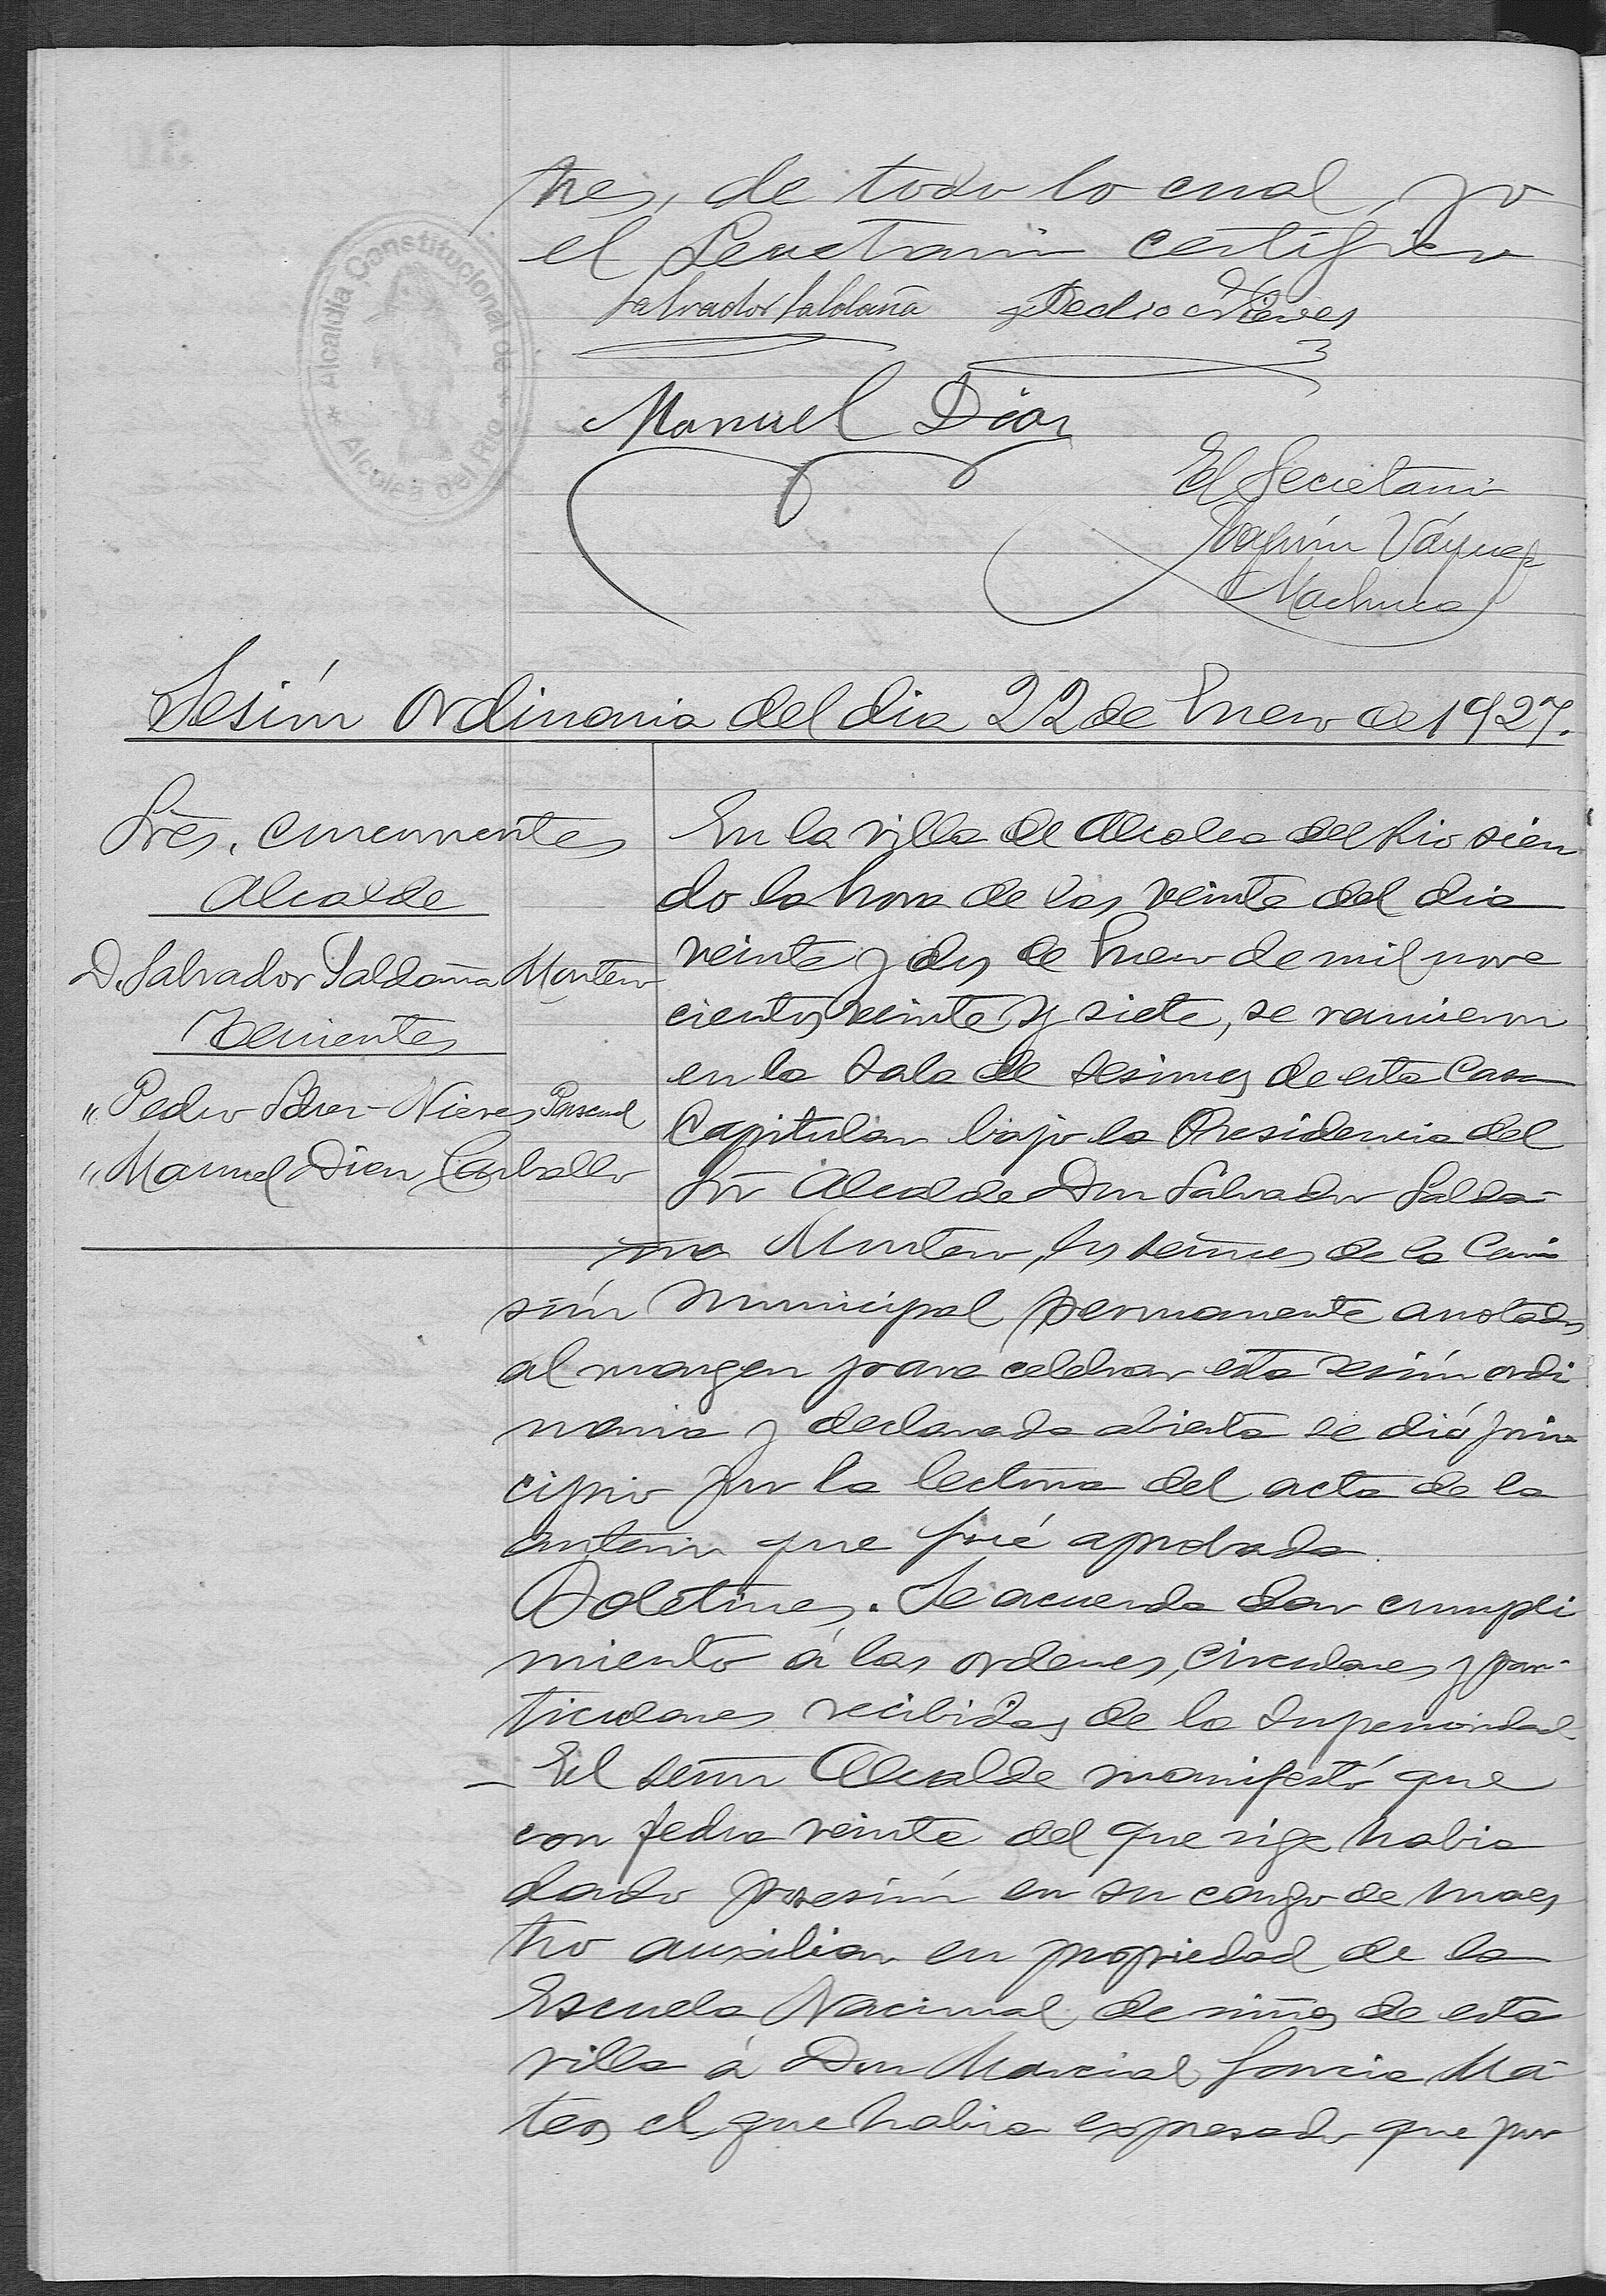 tres, de todo lo cual, yo
el Secretario certifico
Salvador Saldaña Pedro Nieves
Manuel Diaz
El Secretario
Joaquín Vázquez
Machuca
Alcaldia Constitucional de
* Alcolea del Rio *
Sesión ordinaria del dia 22 de Enero de 1927.
Sres. concurrentes
Alcalde
D. Salvador Saldaña Montero
Tenientes
" Pedro Nieves Pascual
" Manuel Diaz Carballo
En la villa de Alcolea del Rio sien
do la hora de las veinte del dia
veinte y dos de Enero de mil nove
cientos veinte y siete, se reunieron
en la Sala de sesiones de esta Casa
Capitular bajo la Presidencia del
Sr Alcalde Don Salvador Salda-
ña Montero, los señores de la Comi
sión municipal permanente anotados
al margen para celebrar esta sesión ordi
naria y declarada abierta se dió prin
cipio por la lectura del acta de la
anterior que fué aprobada.
Boletines. Se acuerda dar cumpli
miento á las ordenes, circulares y par-
ticulares recibidas de la Superioridad
- El señor Alcalde manifestó que
con fecha veinte del que rige habia
dado posesión en su cargo de maes
tro auxiliar en propiedad de la
Escuela Nacional de niños de esta
villa á Don Marcial Garcia Ma-
teos el que habia expresado que por